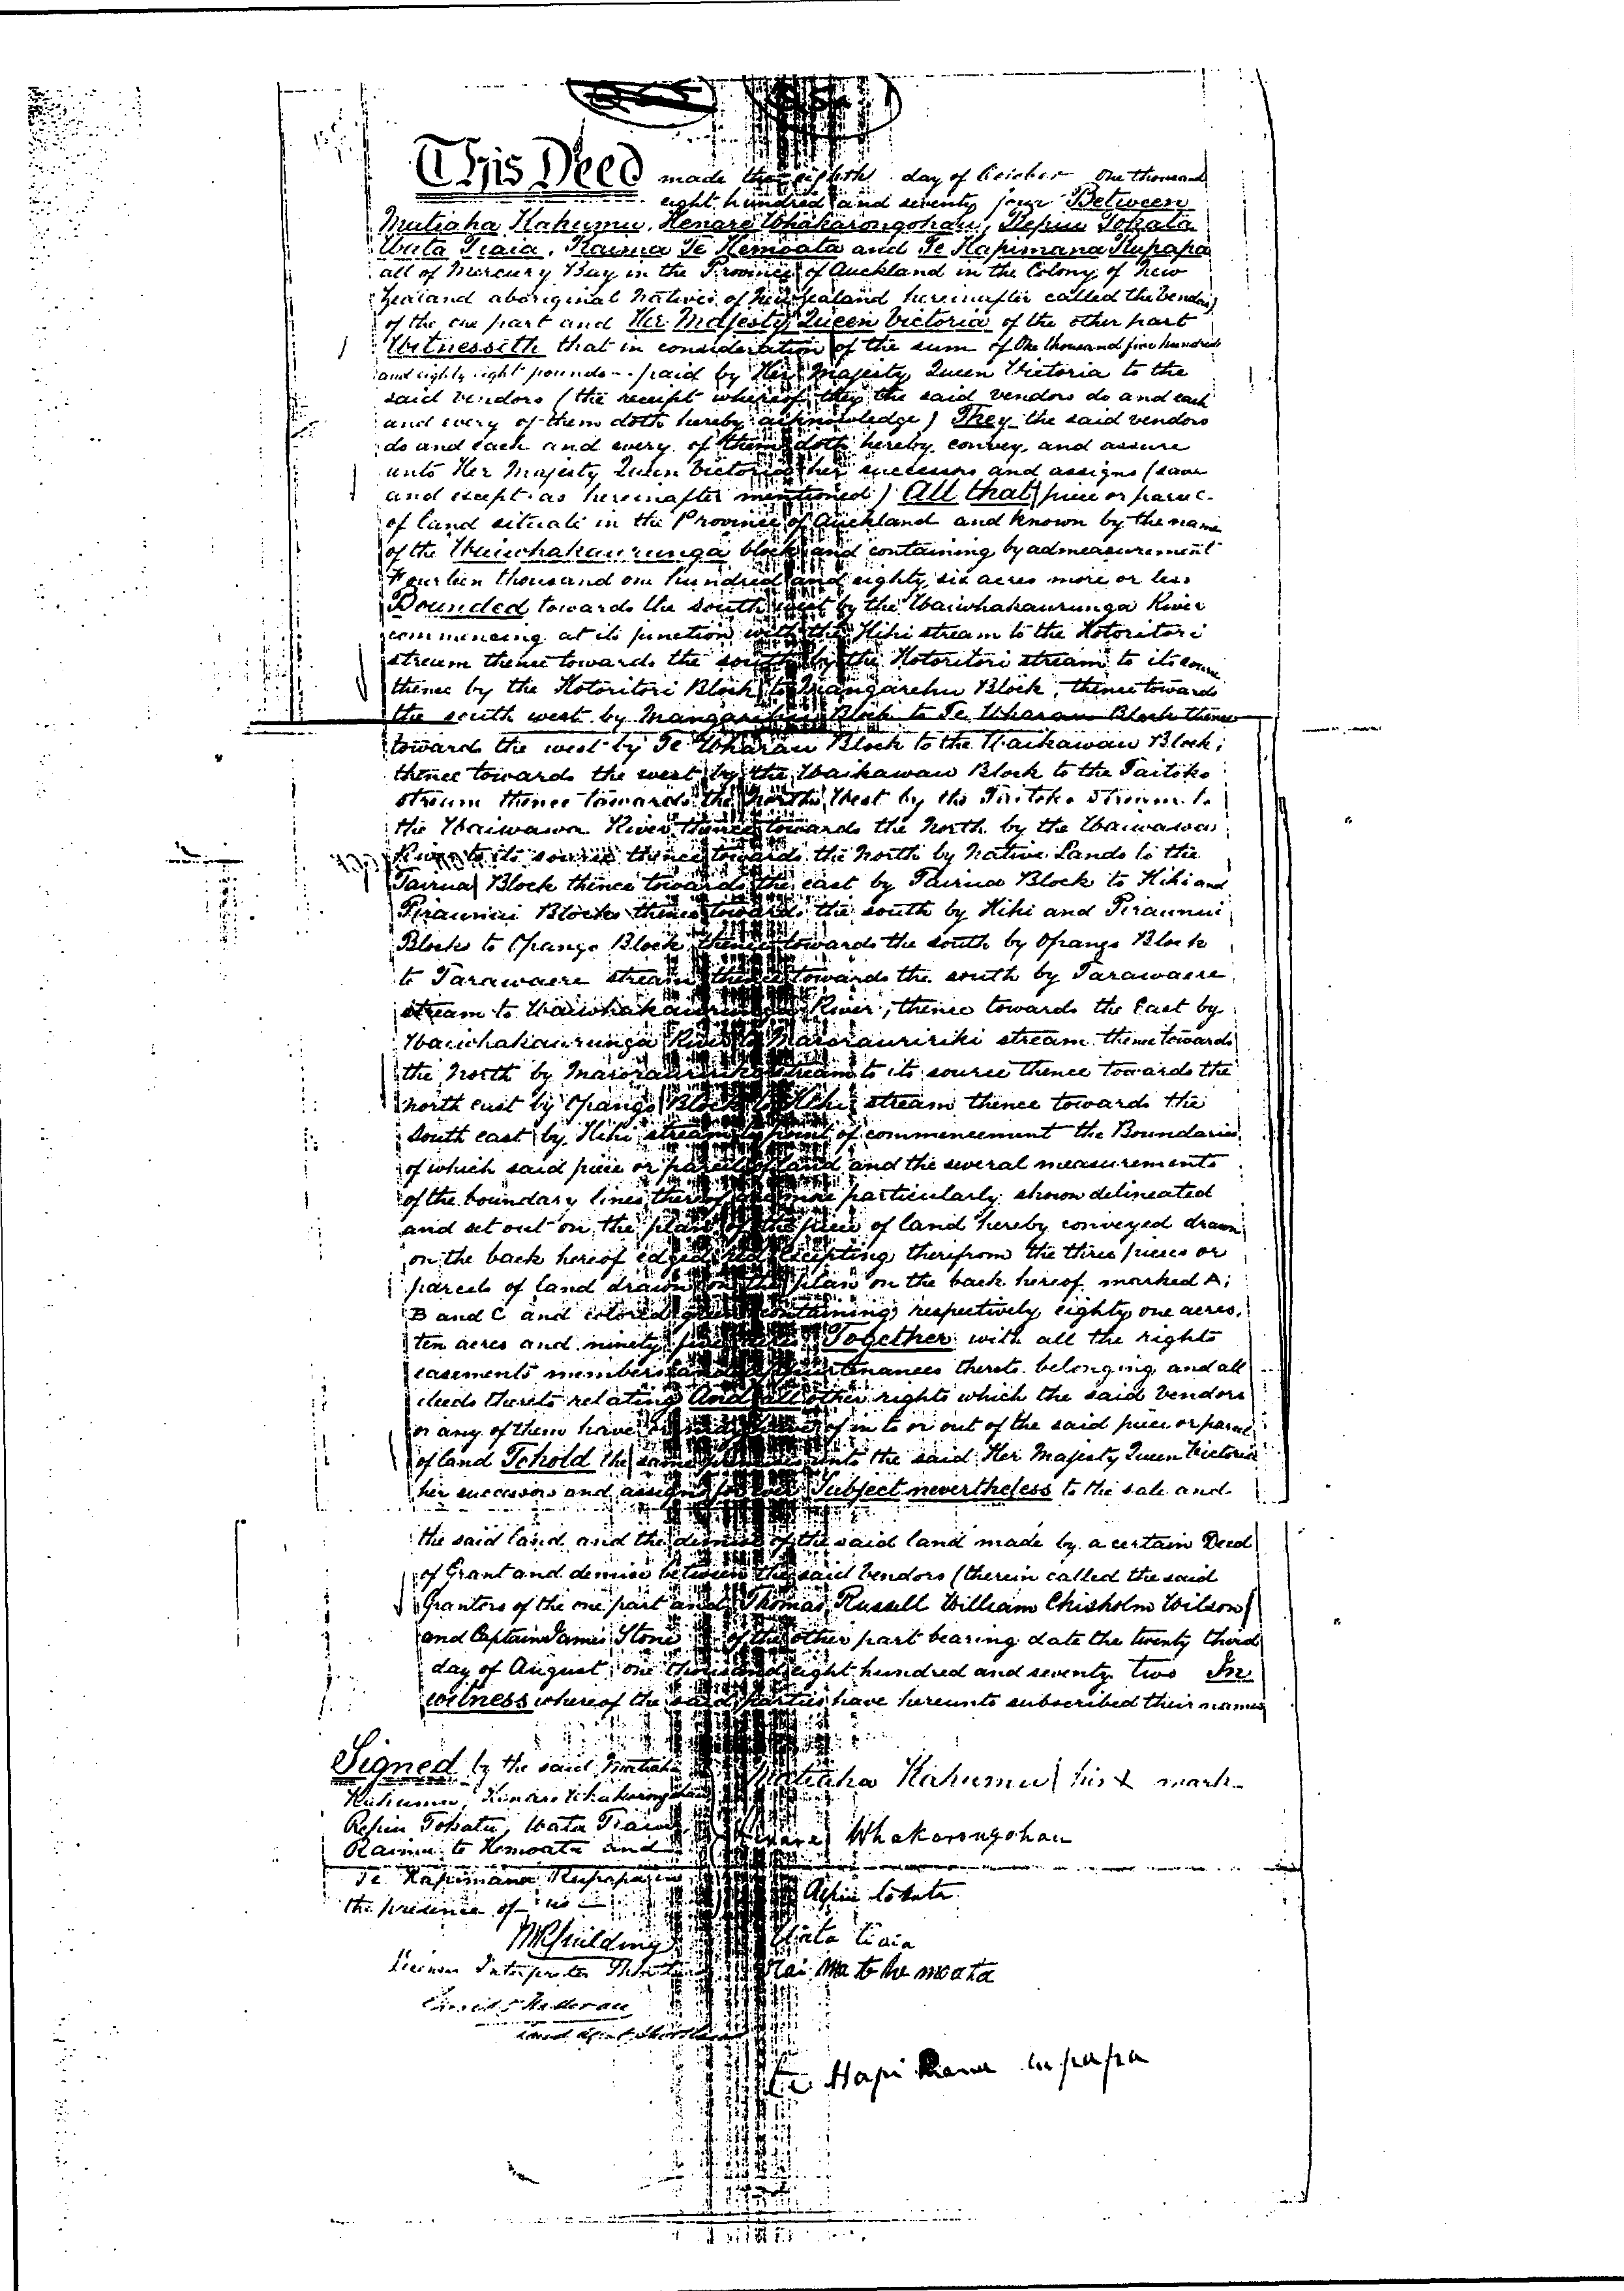 This Deed made the eighth day of October One thousand
eight hundred and seventy four Between
Matiaha Kahumu, Henare Whakarongohau, Repiu Tokata
Wata Tiaia, Raima Te Hemoata and Te Hapimana Rupapa
all of Mercury Bay in the Province of Auckland in the Colony of New
Zealand aboriginal Natives of New Zealand hereinafter called the Vendors
of the one part and Her Majesty Queen Victoria of the other part
Witnesseth that in consideration of the sum of One thousand five hundred
and eighty eight pounds paid by Her Majesty Queen Victoria to the
said Vendors (the receipt whereof they the said vendors do and each
and every of them doth hereby acknowledge) They the said vendors
do and each and every of them doth hereby convey and assure
unto Her Majesty Queen Victoria her successors and assigns (save
and except as hereinafter mentioned) All that piece or parcel
of land situate in the Province of Auckland and known by the name
of the Waiwhakaurunga block and containing by admeasurement
Fourteen thousand one hundred and eighty six acres more or less
Bounded towards the south west by the Waiwhakaurunga River
commencing at its junction with the Hihi stream to the Kotoritori
stream thence towards the south by the Kotoritori stream to its source
thence by the Kotoritori Block to Mangarehu Block, thence towards
the south west by Mangarehu Block to Te Wharau Block thence
toward the west by Te Wharau Block to the Waikawau Block;
thence towards the west by the Waikawau Block to the Taitoko
stream thence towards the North West by the Taitoko Stream to
the Waiwawa River thence towards the North by the Waiwawa
River to its source thence towards the North by Native Lands to the
Tairua Block thence towards the east by Tairua Block to Hihi and
Piraunui Blocks thence towards the south by Hihi and Piraunui
Blocks to Opango Block thence towards the south by Opango Block
to Tarawaere stream thence towards the south by Tarawaere
stream to Waiwhakaurunga River, thence towards the East by
Waiwhakaurunga River to Maroraupiriki stream thence towards
the North by stream to its source thence towards the
north east by Opango Block to Hihi stream thence towards the
south east by Hihi stream to point of commencement the Boundaries
of which said piece or parcel of land and the several measurements
of the boundary lines thereof are more particularly shown delineated
and set out on the plan of the piece of land hereby conveyed drawn
on the back hereof edged red excepting therefrom the three pieces or
parcels of land drawn on the plan on the back hereof marked A;
B and C and colored green containing respectively eighty one acres,
ten acres and ninety five acres Together with all the rights
easements members and appurtenances thereto belonging and all
deeds thereto relating And all other rights which the said Vendors
or any of them have or may have of in to or out of the said piece or parcel
of land To hold the same premises unto the said Her Majesty Queen Victoria
her successors and assigns for ever Subject nevertheless to the sale and
the said land and the demise of the said land made by a certain Deed
of Grant and demise between the said Vendors (therein called the said
Grantors of the one part and Thomas Russell William Chisholm Wilson
and Captain James Stone of the other part bearing date the twenty third
day of August one thousand eight hundred and seventy two In
witness whereof the said parties have hereunto subscribed their names
Signed by the said Matiaha
Kahumu, Henare Whakarongohau
Repiu Tokata, Wata Tiaia
Raima te Hemoata and
Te Hapimana Rupapa in
the presence of us
Licensed Interpreter
Land Agent
Matiaha Kahumu his x mark
Henare Whakarongohau
Repiu tokata
Wata tiaia
Rai Ma te he moata
te Hapi Mana Rupapa